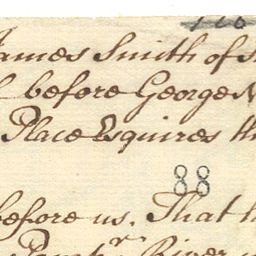 James Smith of
before George
Place Esquires th
88
before us. That h
River